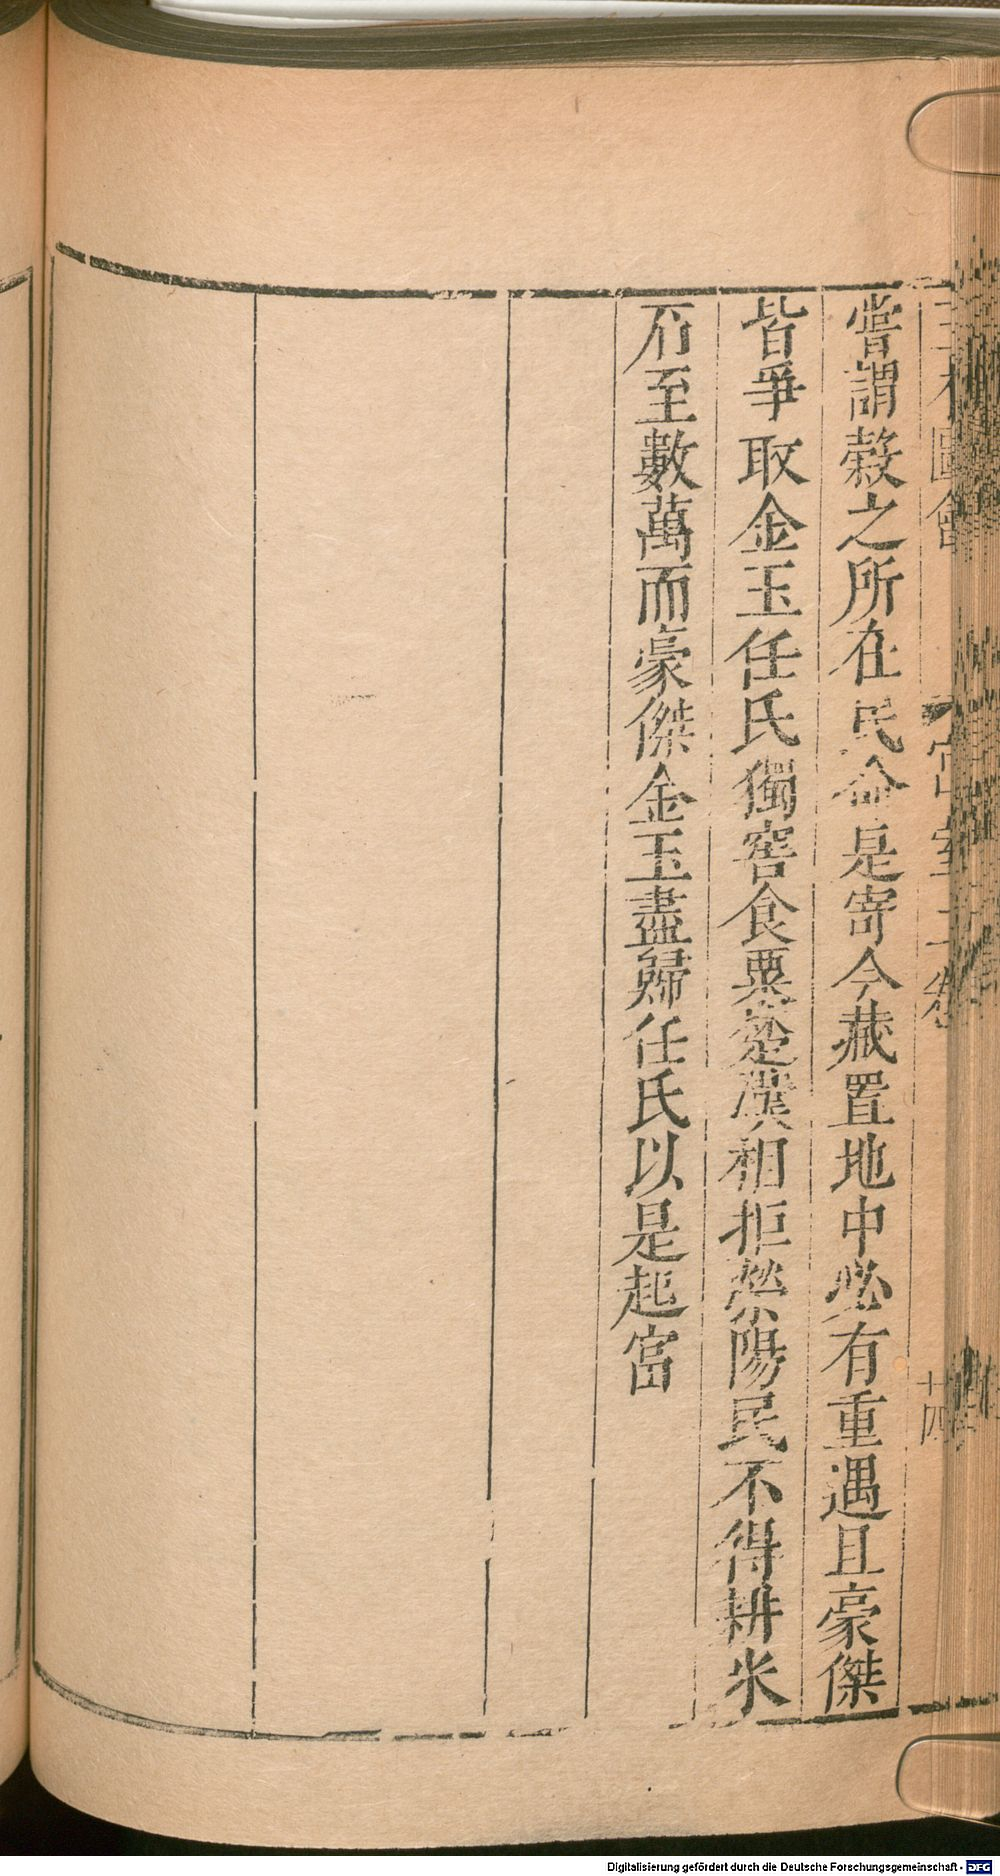 三才圖會
宮室二卷
十四
嘗謂榖之所在民命是寄今藏置地中必有重遇且豪傑
皆爭取金玉任氏獨窖食粟楚漢相拒滎陽民不得耕米
石至數萬而豪傑金玉盡歸任氏以是起富
Digitalisierung gefördert durch die Deutsche Forschungsgemeinschaft - DFG